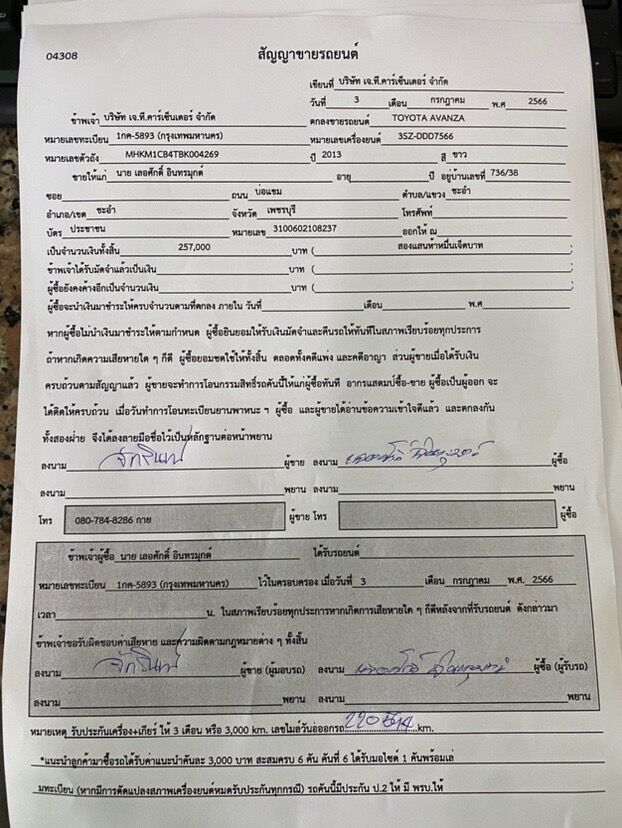 04308
สัญญาขายรถยนต์
เขียนที่ บริษัท เจ.ที.คาร์เซ็นเตอร์ จำกัด
วันที่ 3 เดือน กรกฎาคม พ.ศ 2566
ข้าพเจ้า บริษัท เจ.ที.คาร์เซ็นเตอร์ จำกัด ตกลงขายรถยนต์ TOYOTA AVANZA
หมายเลขทะเบียน 1กค-5893 (กรุงเทพมหานคร) หมายเลขเครื่องยนต์ 3SZ-DDD7566
หมายเลขตัวถัง MHKM1CB4TBK004269 ปี 2013 สี ขาว
ขายให้แก่ นาย เลอศักดิ์ อินทรมุกต์ อายุ ปี อยู่บ้านเลขที่ 736/38
ซอย ถนน บ่อแขม ตำบล/แขวง ชะอำ
อำเภอ/เขต ชะอำ จังหวัด เพชรบุรี โทรศัพท์
บัตร ประชาชน หมายเลข 3100602108237 ออกให้ ณ
เป็นจำนวนเงินทั้งสิ้น 257,000 บาท ( สองแสนห้าหมื่นเจ็ดบาท )
ข้าพเจ้าได้รับมัดจำแล้วเป็นเงิน บาท ( )
ผู้ซื้อยังคงค้างอีกเป็นจำนวนเงิน บาท ( )
ผู้ซื้อจะนำเงินมาชำระให้ครบจำนวนตามที่ตกลง ภายใน วันที่ เดือน พ.ศ
หากผู้ซื้อไม่นำเงินมาชำระให้ตามกำหนด ผู้ซื้อยินยอมให้รับเงินมัดจำและคืนรถให้ทันทีในสภาพเรียบร้อยทุกประการ
ถ้าหากเกิดความเสียหายใด ๆ ก็ดี ผู้ซื้อยอมชดใช้ให้ทั้งสิ้น ตลอดทั้งคดีแพ่ง และคดีอาญา ส่วนผู้ขายเมื่อได้รับเงิน
ครบถ้วนตามสัญญาแล้ว ผู้ขายจะทำการโอนกรรมสิทธิ์รถคันนี้ให้แก่ผู้ซื้อทันที อากรแสตมป์ซื้อ-ขาย ผู้ซื้อเป็นผู้ออก จะ
ได้ติดให้ครบถ้วน เมื่อวันทำการโอนทะเบียนยานพาหนะ ๆ ผู้ซื้อ และผู้ขายได้อ่านข้อความเข้าใจดีแล้ว และตกลงกัน
ทั้งสองฝ่าย จึงได้ลงลายมือชื่อไว้เป็นหลักฐานต่อหน้าพยาน
ลงนาม ผู้ขาย ลงนาม ผู้ซื้อ
ลงนาม พยาน ลงนาม พยาน
โทร 080-784-8286 กาย ผู้ขาย โทร ผู้ซื้อ
ข้าพเจ้าผู้ซื้อ นาย เลอศักดิ์ อินทรมุกต์ ได้รับรถยนต์
หมายเลขทะเบียน 1กค-5893 (กรุงเทพมหานคร) ไว้ในครอบครอง เมื่อวันที่ 3 เดือน กรกฎาคม พ.ศ. 2566
เวลา น. ในสภาพเรียบร้อยทุกประการหากเกิดการเสียหายใด ๆ ก็ดีหลังจากที่รับรถยนต์ ดังกล่าวมา
ข้าพเจ้าขอรับผิดชอบค่าเสียหาย และความผิดตามกฎหมายต่าง ๆ ทั้งสิ้น
ลงนาม ผู้ขาย (ผู้มอบรถ) ลงนาม ผู้ซื้อ (ผู้รับรถ)
ลงนาม พยาน ลงนาม พยาน
หมายเหตุ รับประกันเครื่อง+เกียร์ ให้ 3 เดือน หรือ 3,000 km. เลขไมล์วันออกรถ km.
*แนะนำลูกค้ามาซื้อรถได้รับค่าแนะนำคันละ 3,000 บาท สะสมครบ 6 คัน คันที่ 6 ได้รับมอไซด์ 1 คันพร้อมเล่
มทะเบียน (หากมีการดัดแปลงสภาพเครื่องยนต์หมดรับประกันทุกกรณี) รถคันนี้มีประกัน ป.2 ให้ มี พรบ.ให้